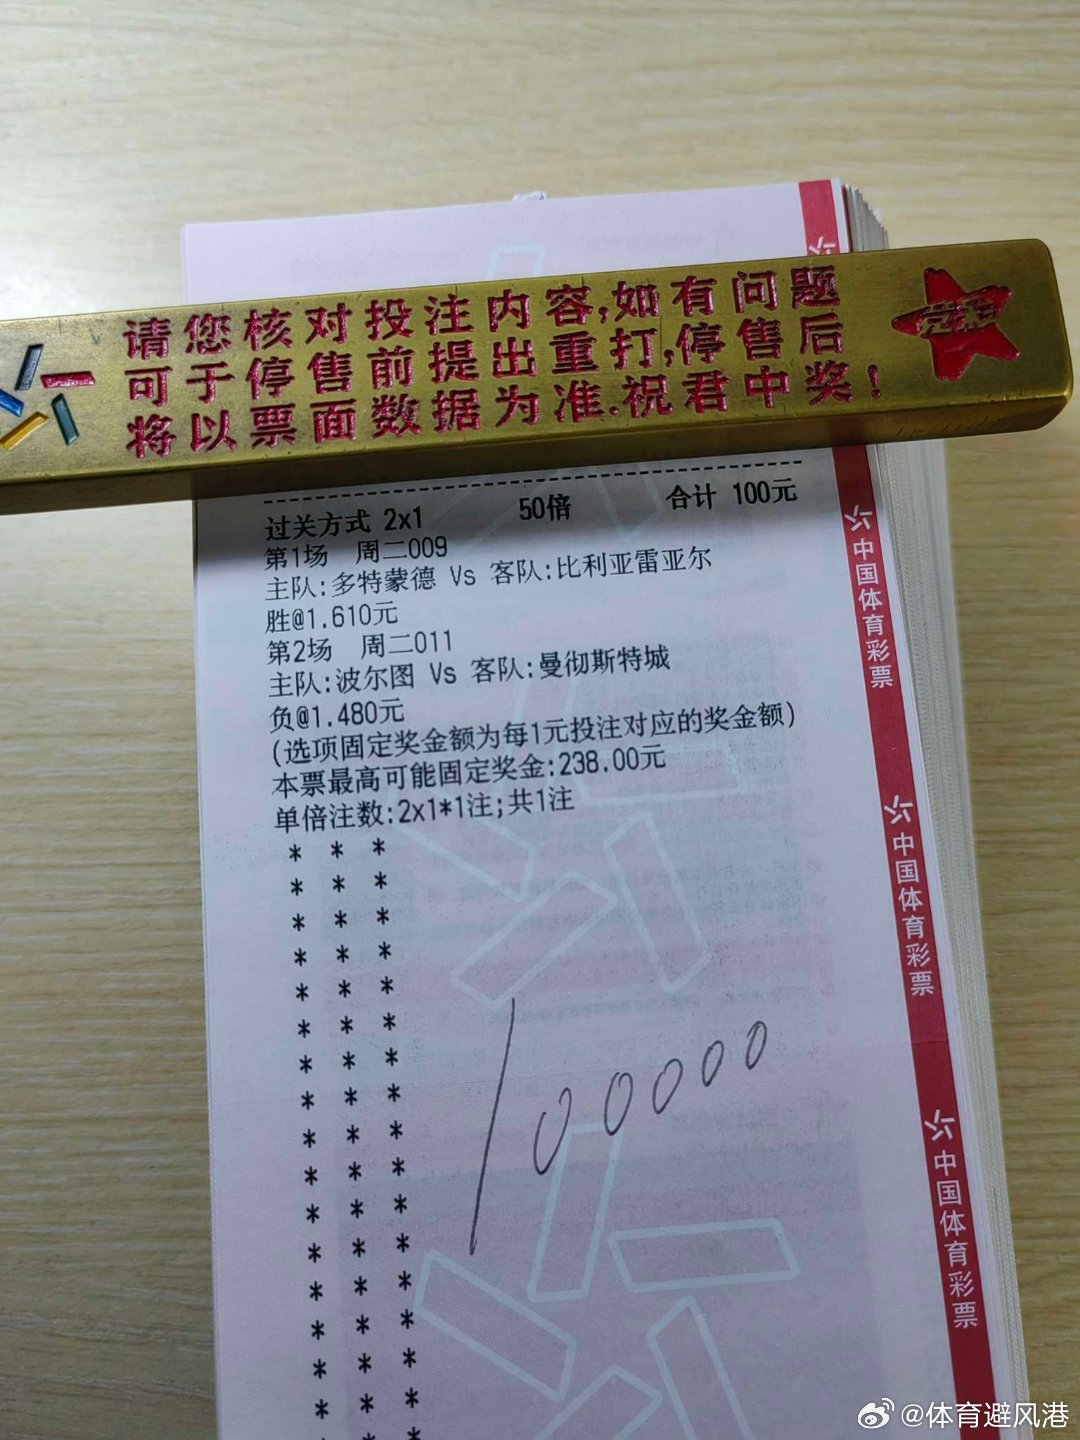 请您核对投注内容,如有问题
可于停售前提出重打,停售后
将以票面数据为准.祝君中奖!
过关方式 2x1 50倍 合计 100元
第1场 周二009
主队:多特蒙德 Vs 客队:比利亚雷亚尔
胜@1.610元
第2场 周二011
主队:波尔图 Vs 客队:曼彻斯特城
负@1.480元
(选项固定奖金额为每1元投注对应的奖金额)
本票最高可能固定奖金:238.00元
单倍注数:2x1*1注;共1注
* * *
* * *
* * *
* * *
* * *
* * *
* * *
* * *
* * *
* * *
* * *
* * *
* * *
* * *
* * *
* * *
* * *
100000
中国体育彩票
中国体育彩票
中国体育彩票
@体育避风港